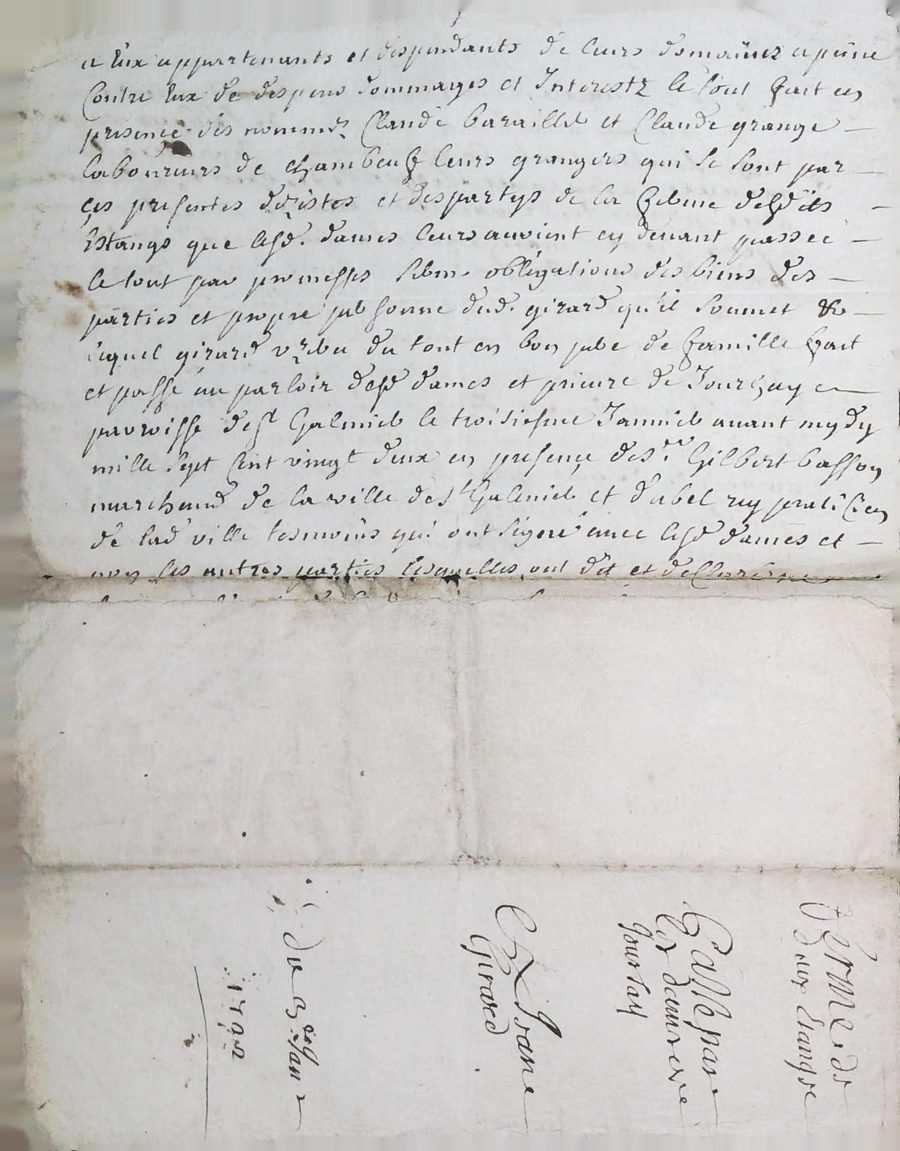 a Eux appartenants et despendants de leurs domaines a peine
Contre Eux de despens dommages et Interestz le tout fait en
presence des nommez Claude baraillé et Claude grange
laboureurs de chambeuf leurs grangers qui se sont par
ces presentes desistes et despartys de la ferme desdits
Estangs que lesd. dames leurs avoient cy devant passee
le tout par promesses obligations des biens des
parties et propre personne dud. girard qu'il soumet &c
lequel girard du tout en bon pere de famille fait
et passé au parloir desd dames et prieuré de Jourcay
parroisse de st Galmier le troisiesme Janvier avant mydy
mille sept cent vingt deux en presence de sr Gilbert basson
marchand de la ville de st Galmier et d'abel rey praticien
de lad ville tesmoins qui ont signé avec lesd dames et
non les autres parties lesquelles ont dit et declaré
ferme de
deux Estangs
Passé par
les dames de
Jourcay
A
Girard
du 3 Janr
1722